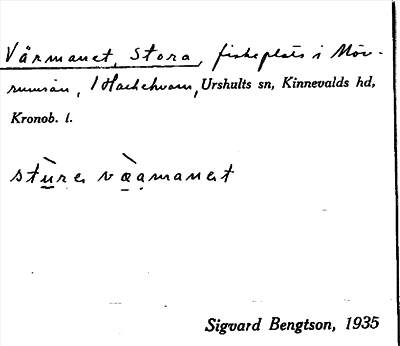 Värmanet, Stora, fiskeplats i Mör-
rumsån, / Hackekvarn, Urshults sn, Kinnevalds hd,
Kronob. l.
Sigvard Bengtson, 1935